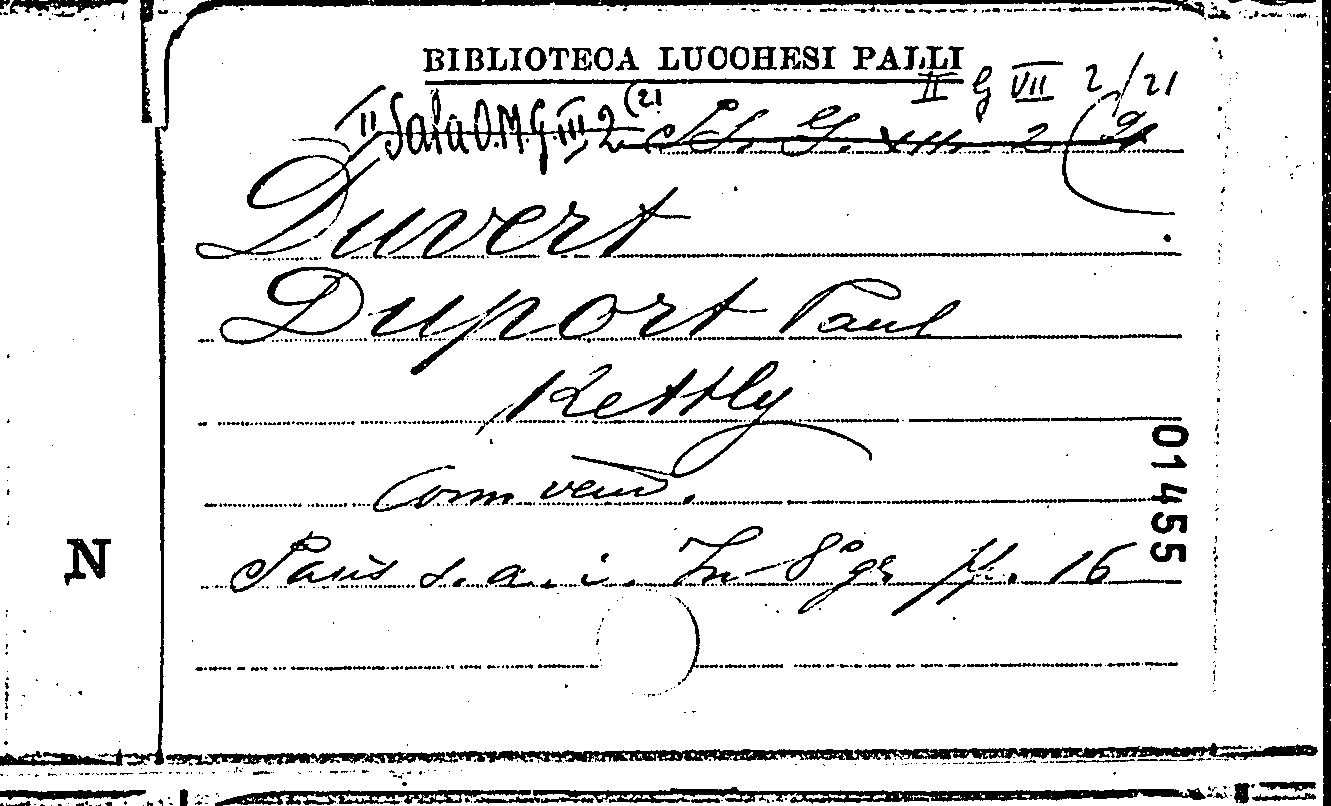 BIBLIOTECA LUCCHESI PALLI
II G VII 2/21
II Sala O.M.G. III, 2 (21
G. XIII. 2 (21
Duvert
Duport Paul
Kettly
Com. vaud.
Paris s. a. i. In-8° gr. pp. 16
01455
N